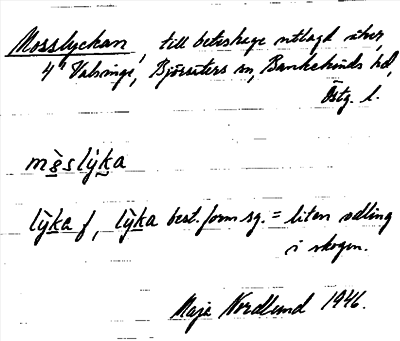 Mosslyckan, till beteshage utlagd åker,
4ª Valsinge, Björsäters sn, Bankekinds hd,
Östg. l.
mɵ̀slỳka
lỳka f, lỳka best. form sg. = liten odling
i skogen.
Maja Nordlund 1946.